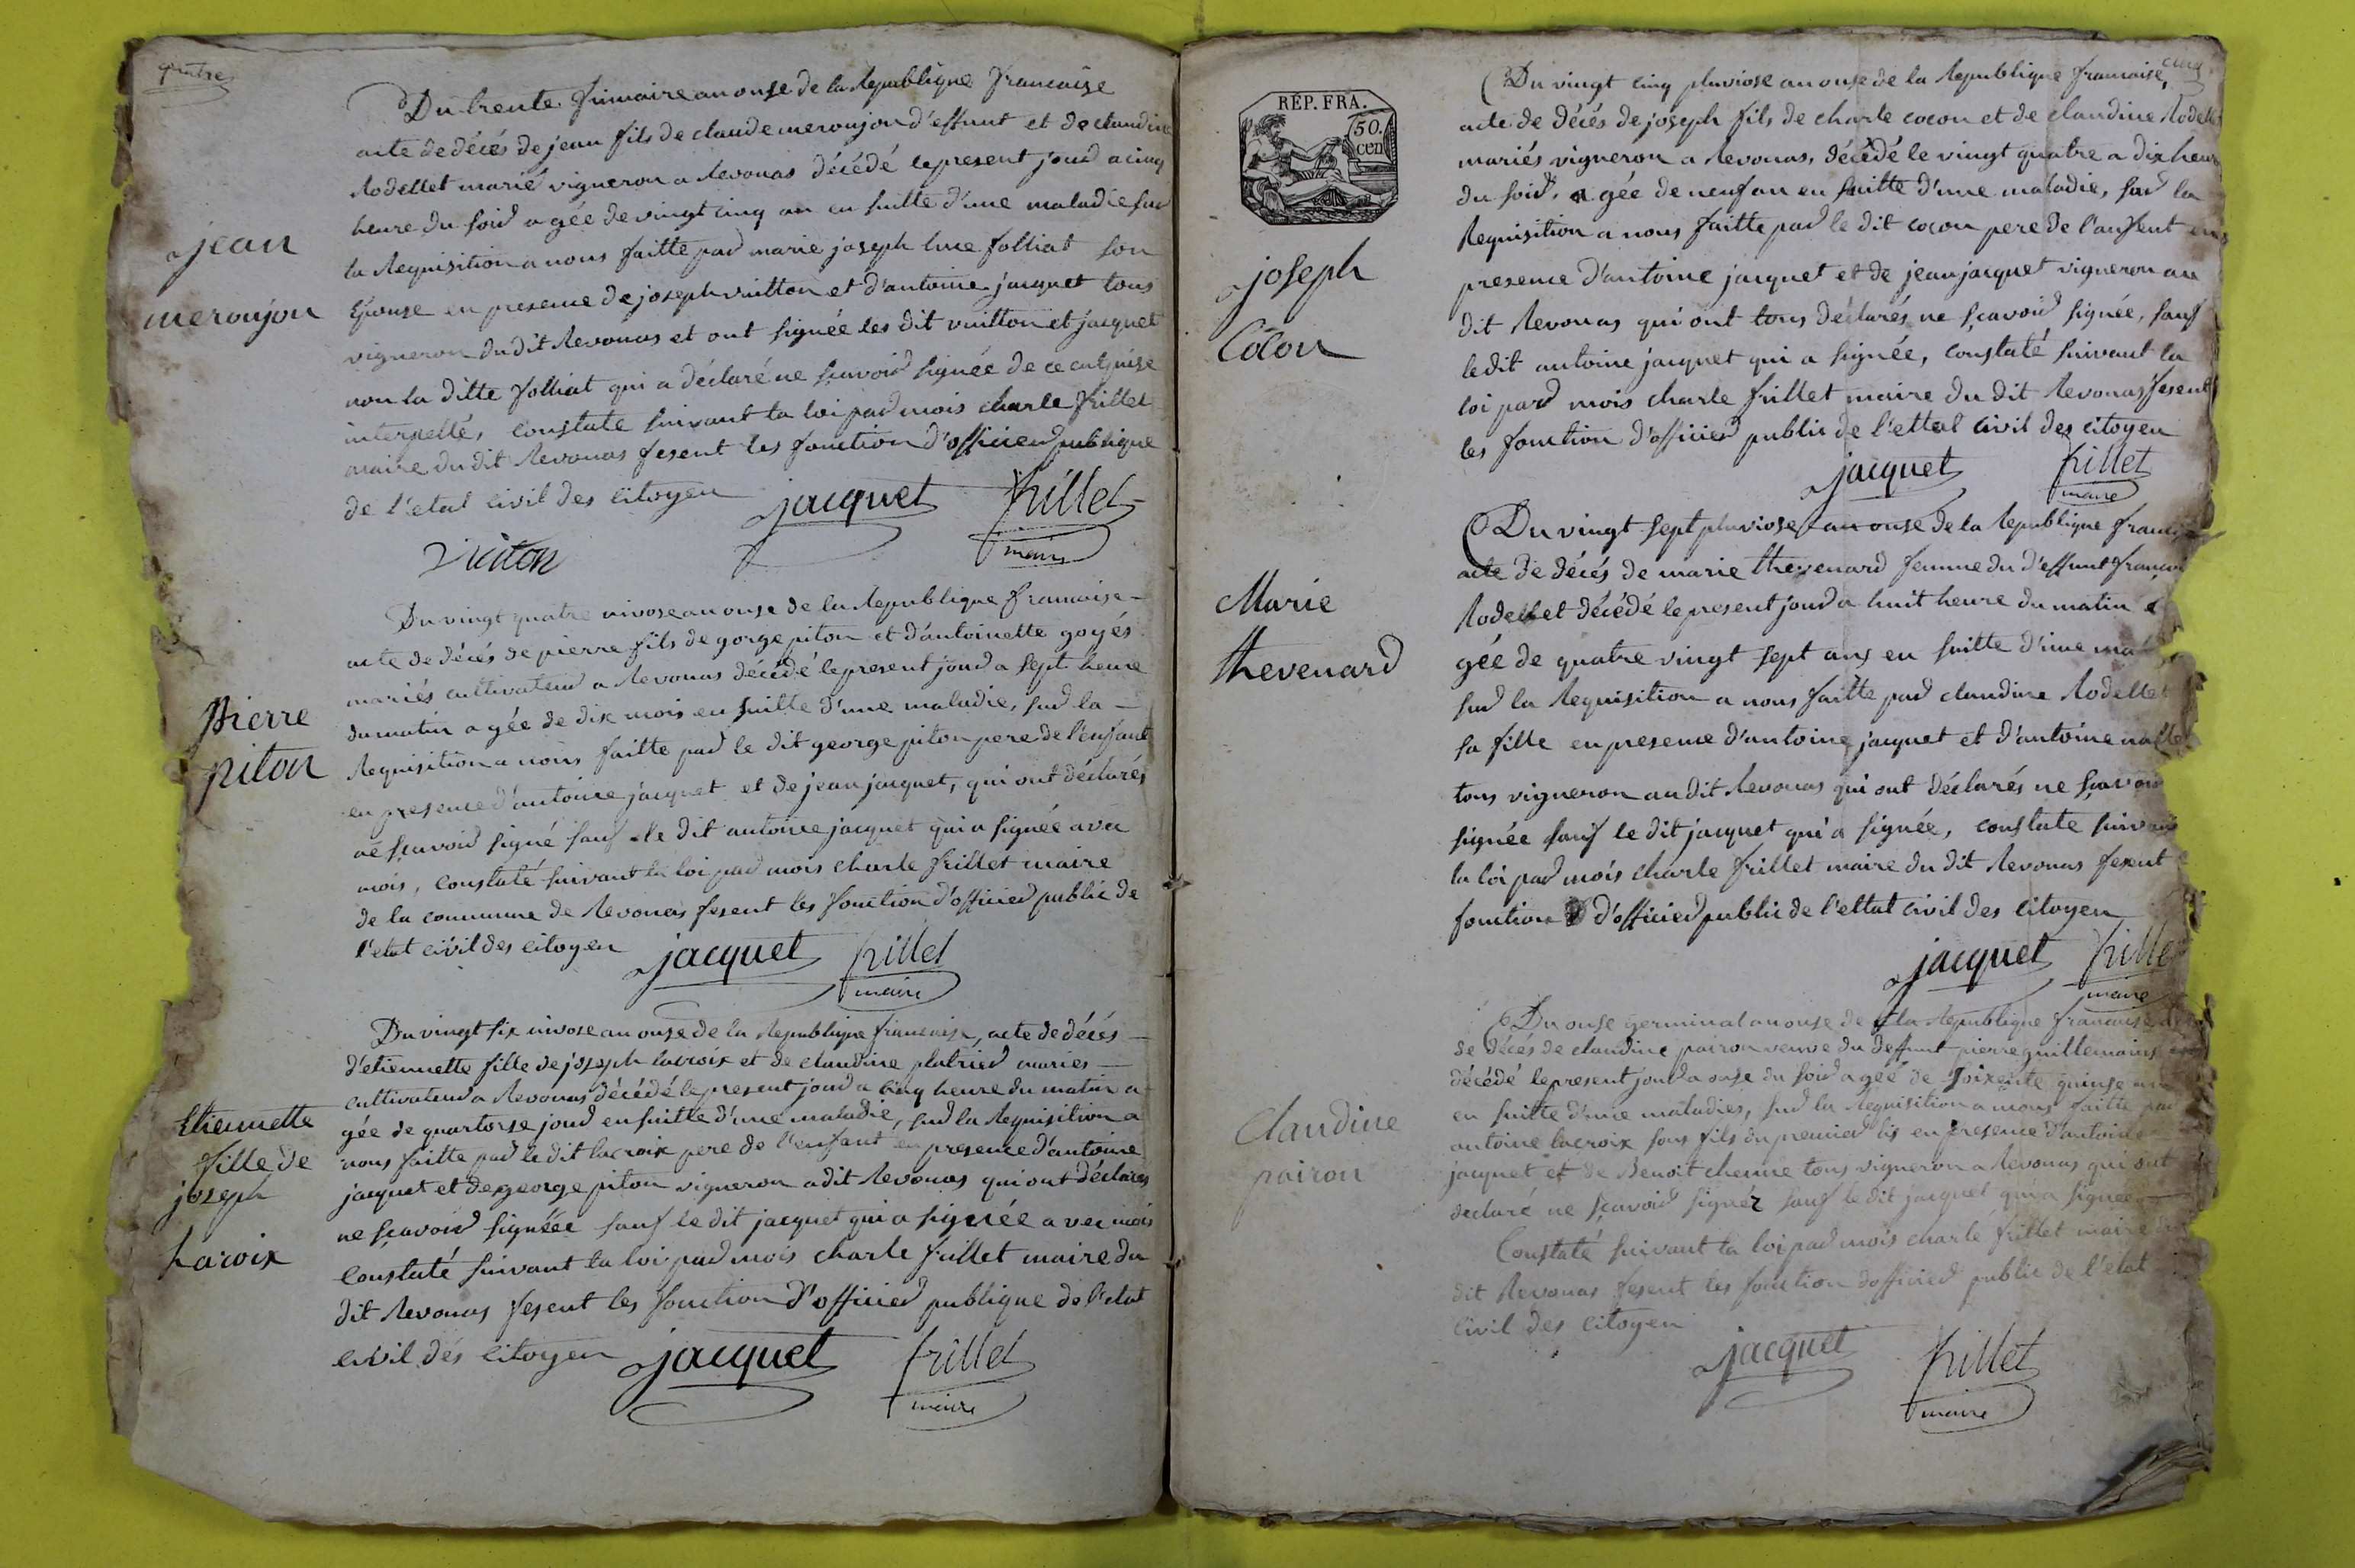 quatre
Du trente frimaire an onse de la Republique francaise
acte de décés de jean fils de claude meroujon d'effunt et de claudine
Rodellet marié vigneron a Revonas décédé le present jour a cinq
heure du soir agée de vingt cinq an en suitte d'une maladie sur
la Requisition a nous faitte par marie joseph folliat son
Epouse en presence de joseph vuitton et d'antoine jacquet tous
vigneron du dit Revonas et ont signée les dit vuitton et jacquet
non la ditte folliat qui a déclaré ne sçavoir signée de ce enquise
interpellé, constate suivant la loi par mois charle frillet
maire du dit Revonas fesent les fonction d'officier publique
de l'etat civil des citoyen
jacquet frillet
maire
vuiton
jean
meroujon
Du vingt quatre nivose an onse de la Republique francaise
acte de décés de pierre fils de gorge piton et d'antoinette goyés
mariés cultivateur a Revonas décédé le present jour a sept heure
du matin agée de dix mois en suitte d'une maladie, sur la
Requisition a nous faitte par le dit george piton pere de l'enfant
en presence d'antoine jacquet et de jean jacquet, qui ont déclarés
né sçavoir signé sauf le dit antoine jacquet qui a signée avec
mois, constaté suivant la loi par mois charle frillet maire
de la commune de Revonas fesent les fonction d'officier public de
l'etat civil des citoyen
jacquet frillet
maire
Pierre
piton
Du vingt six nivose an onse de la Republique francaise, acte de décés
d'etiennette fille de joseph lacroix et de claudine platrier mariés
cultivateur a Revonas décédé le present jour a cinq heure du matin a
gée de quartorse jour en suitte d'une maladie, sur la Requisition a
nous faitte par le dit lacroix pere de l'enfant en presence d'antoine
jacquet et de george piton vigneron a dit Revonas qui ont déclarés
ne sçavoir signéee sauf le dit jacquet qui a signée avec mois
Constaté suivant la loi par mois charle frillet maire du
dit Revonas fesent les fonction d'officier publique de l'etat
civil des citoyen
jacquet frillet
maire
Etiennette
fille de
joseph
Lacroix
cinq
REP. FRA.
50.
cen
Du vingt cinq pluviose an onse de la Republique francaise,
acte de décés de joseph fils de charle cocon et de claudine Rodellet
mariés vigneron a Revonas, décédé le vingt quatre a dix heure
du soir, agée de neuf an en suitte d'une maladie, sur la
Requisition a nous faitte par le dit cocon pere de l'anfent en
presence d'antoine jacquet et de jean jacquet vigneron au
dit Revonas qui ont tous déclarés ne sçavoir signée, sauf
le dit antoine jacquet qui a signée, constaté suivant la
loi par mois charle frillet maire du dit Revonas fesent
les fonction d'officier public de l'ettat civil des citoyen
jacquet frillet
maire
joseph
Cocon
Du vingt sept pluviose an onse de la Republique
acte de décés de marie thevenard femme du d'effunt
Rodellet décédé le present jour a huit heure du matin a
gée de quatre vingt sept ans en suitte d'une
sur la Requisition a nous faitte par claudine Rodellet
sa fille en presence d'antoine jacquet et d'antoine
tous vigneron au dit Revonas qui ont déclarés ne sçavoir
signée sauf le dit jacquet qui a signée, constate suivant
la loi par mois charle frillet maire du dit Revonas fesent
fonction d'officier public de l'ettat civil des citoyen
jacquet frillet
maire
Marie
thevenard
Du onse germinal an onse de la Republique francaise
de décés de claudine poiron veuve du deffunt pierre guillemaine
décédé le present jour a onse du soir agée de soixente quinse
en suitte d'une maladies, sur la Requisition a nous faitte par
antoine lacroix sons fils du premier lis en presence d'antoine
jacquet et de Benoit chenne tous vigneron a Revonas qui ont
declaré ne sçavoir signéz sauf le dit jacquet qui a signée
Constaté suivant la loi par mois charle frillet maire du
dit Revonas fesent les fonction d'officier public de l'état
civil des citoyen
jacquet frillet
maire
Claudine
poiron